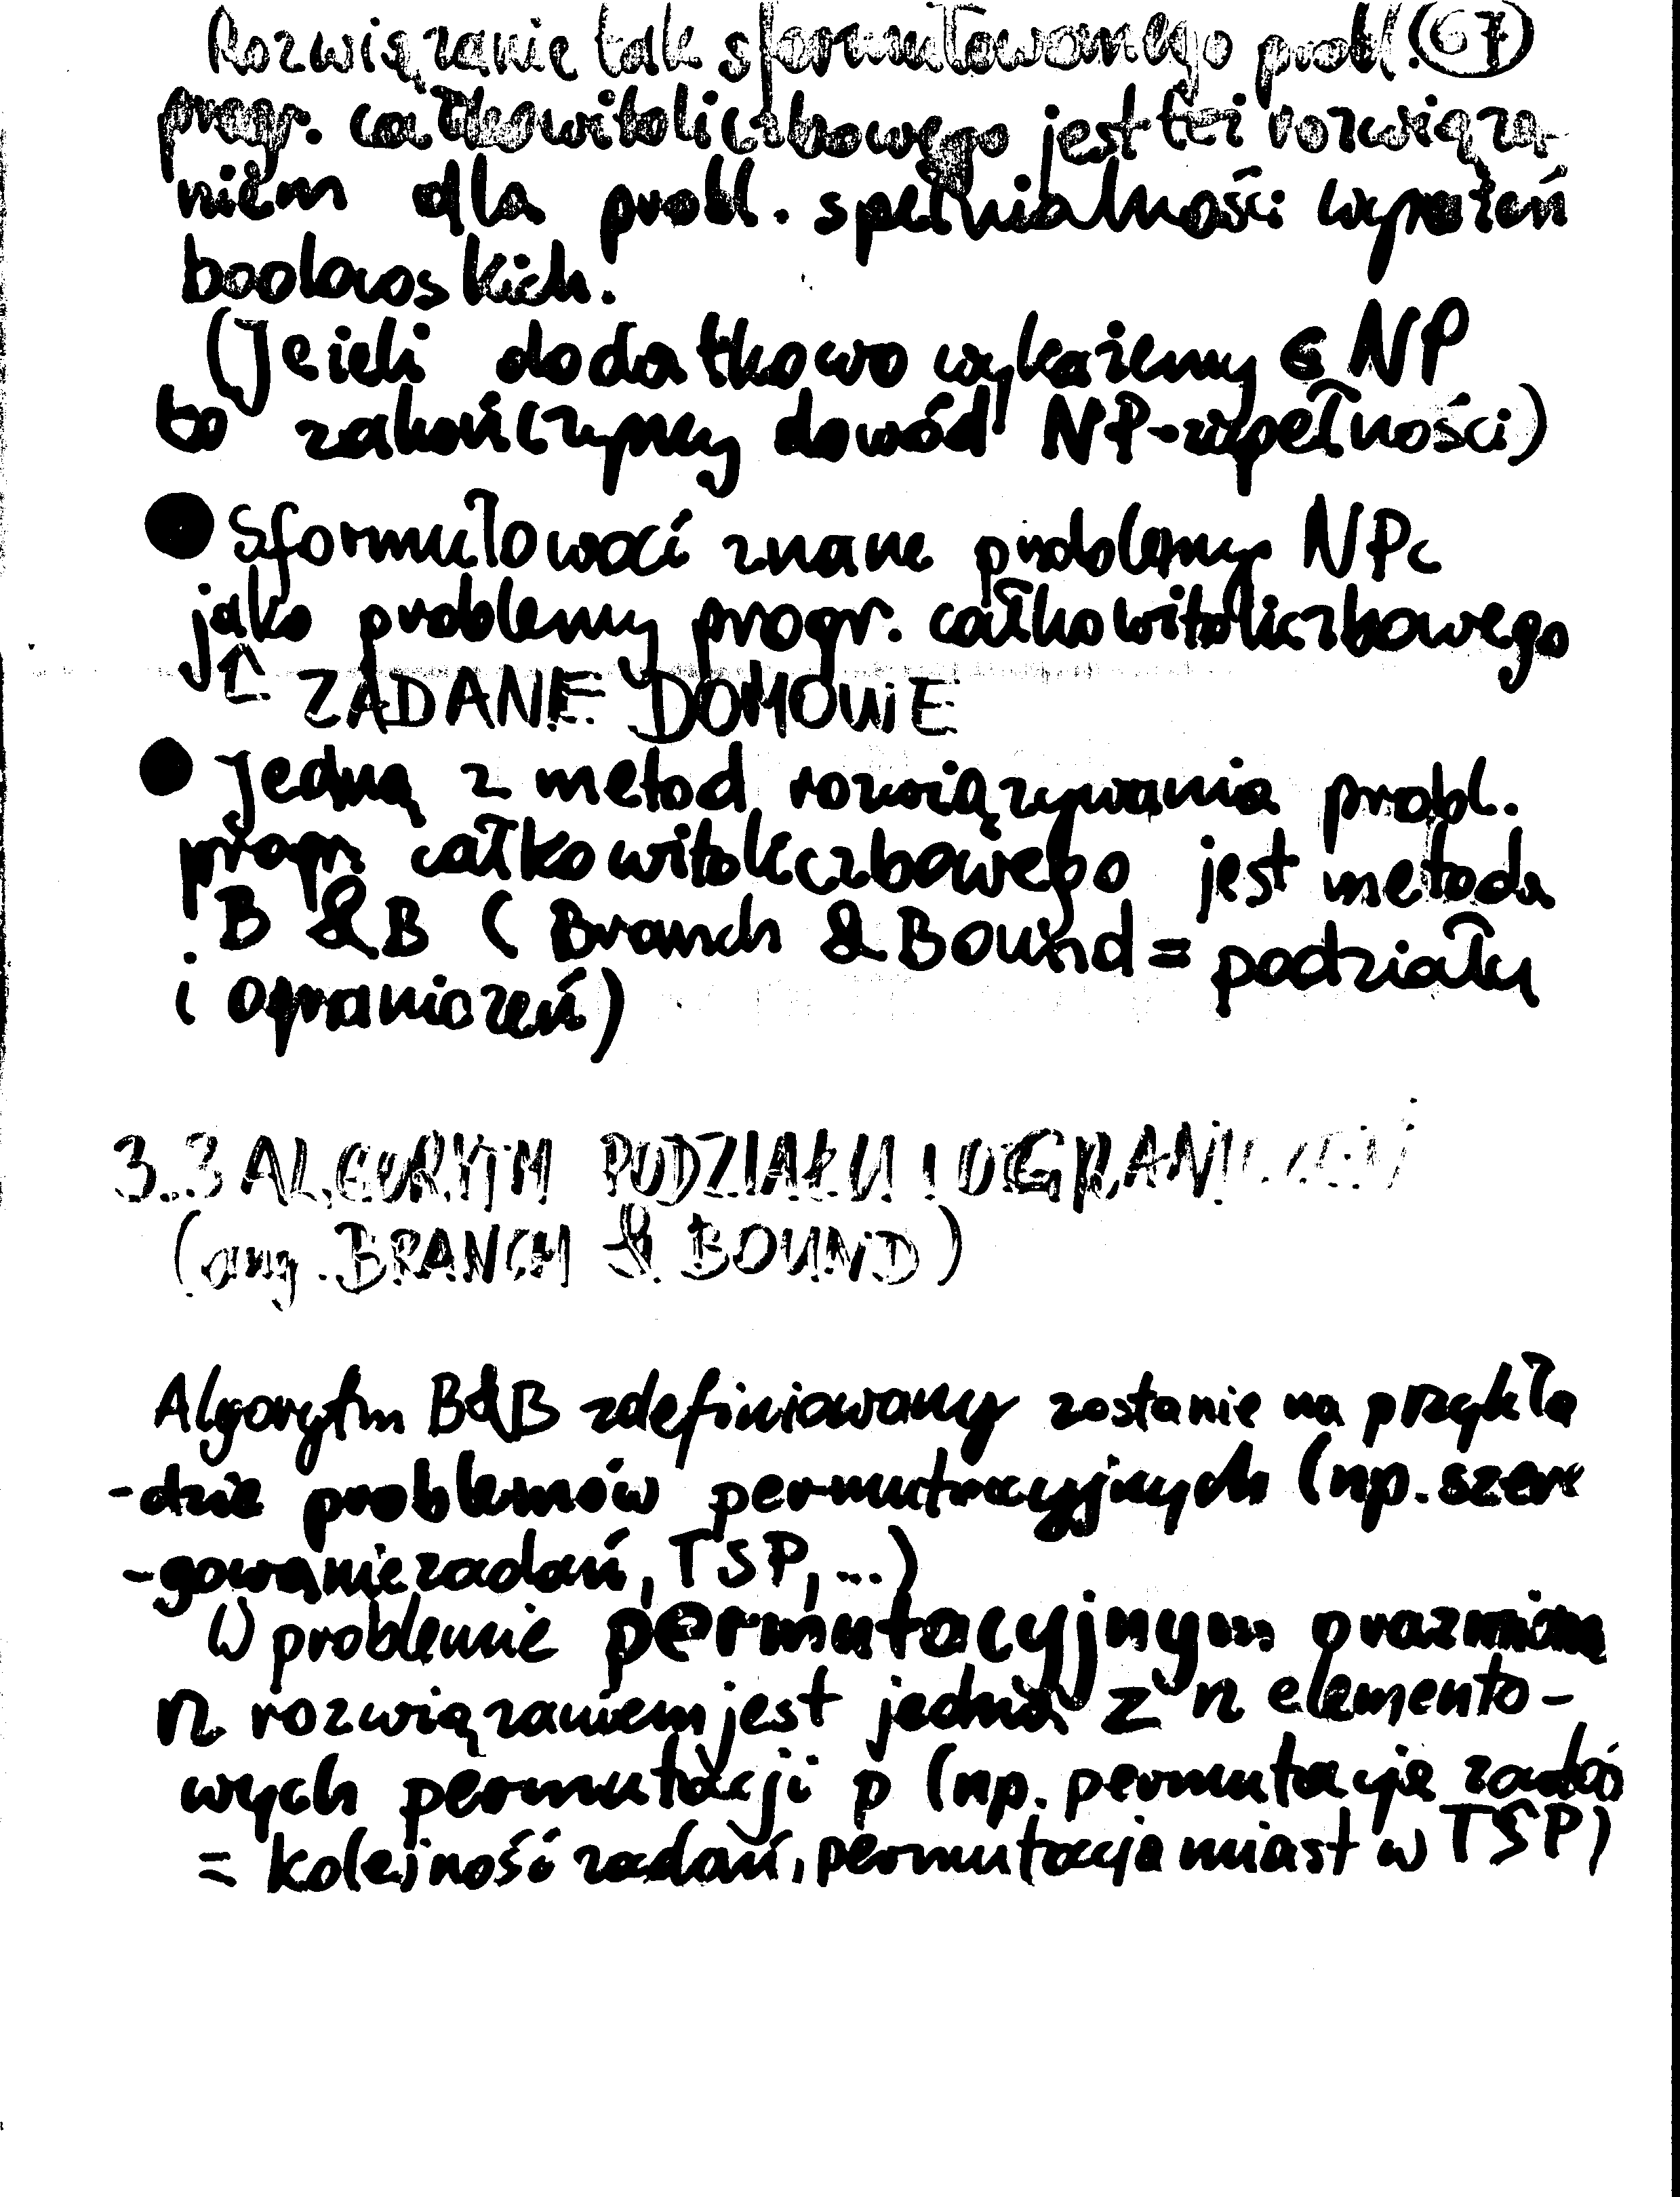 Rozwiązanie tak sformułowanego probl. 67
progr. całkowitoliczbowego jest też rozwiąza-
niem dla probl. spełnialności wyrażeń
boolowskich.
(Jeżeli dodatkowo wykażemy ∈ NP
to zakończymy dowód NP-zupełności)
● Sformułować znane problemy NPc
jako problemy progr. całkowitoliczbowego
↑ ZADANE DOMOWE
● Jedną z metod rozwiązywania probl.
progr. całkowitoliczbowego jest metoda
B & B ( Branch & Bound = podziału
i ograniczeń)
3.3 ALGORYTM PODZIAŁU I OGRANICZEŃ
(ang. BRANCH & BOUND)
Algorytm B&B zdefiniowany zostanie na przykła
-dzie problemów permutacyjnych (np. szere
-gowanie zadań, TSP, ...)
W problemie permutacyjnym o rozmiarze
n rozwiązaniem jest jedna z n elemento-
wych permutacji p (np. permutacja zadań
= kolejność zadań, permutacja miast w TSP)